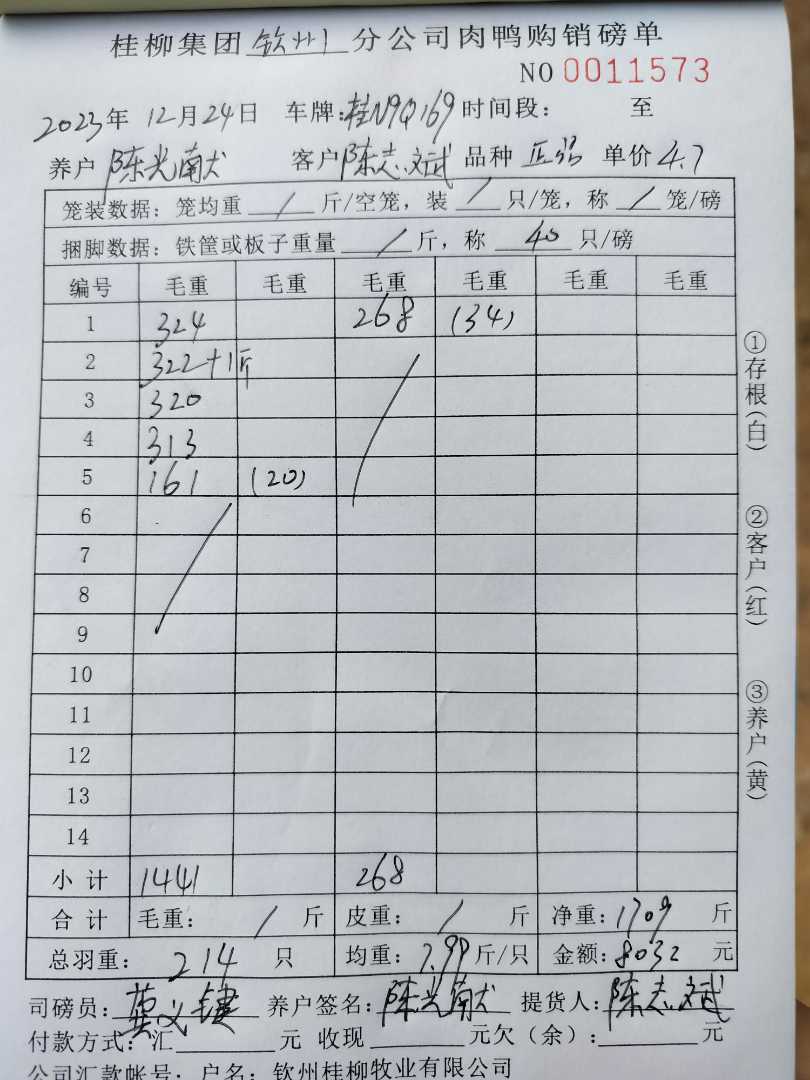 桂柳集团钦州分公司肉鸭购销磅单
NO 0011573
2023年 12月24日 车牌:桂N9Q169 时间段: 至
养户 陈光献 客户 陈志斌 品种 正 单价 4.7
笼装数据: 笼均重 / 斤/空笼, 装 / 只/笼, 称 / 笼/磅
捆脚数据: 铁筐或板子重量 / 斤, 称 40 只/磅
编号 毛重 毛重 毛重 毛重 毛重 毛重
1 324 268 (34)
2 322+1斤
3 320
4 313
5 161 (20)
6
7
8
9
10
11
12
13
14
小计 1441 268
合计 毛重: / 斤 皮重: / 斤 净重: 1709 斤
总羽重: 214 只 均重: 7.99 斤/只 金额: 8032 元
司磅员: 莫义键 养户签名: 陈光献 提货人: 陈志斌
付款方式: 汇 元 收现 元欠(余): 元
公司汇款帐号: 户名: 钦州桂柳牧业有限公司
①存根(白)
②客户(红)
③养户(黄)